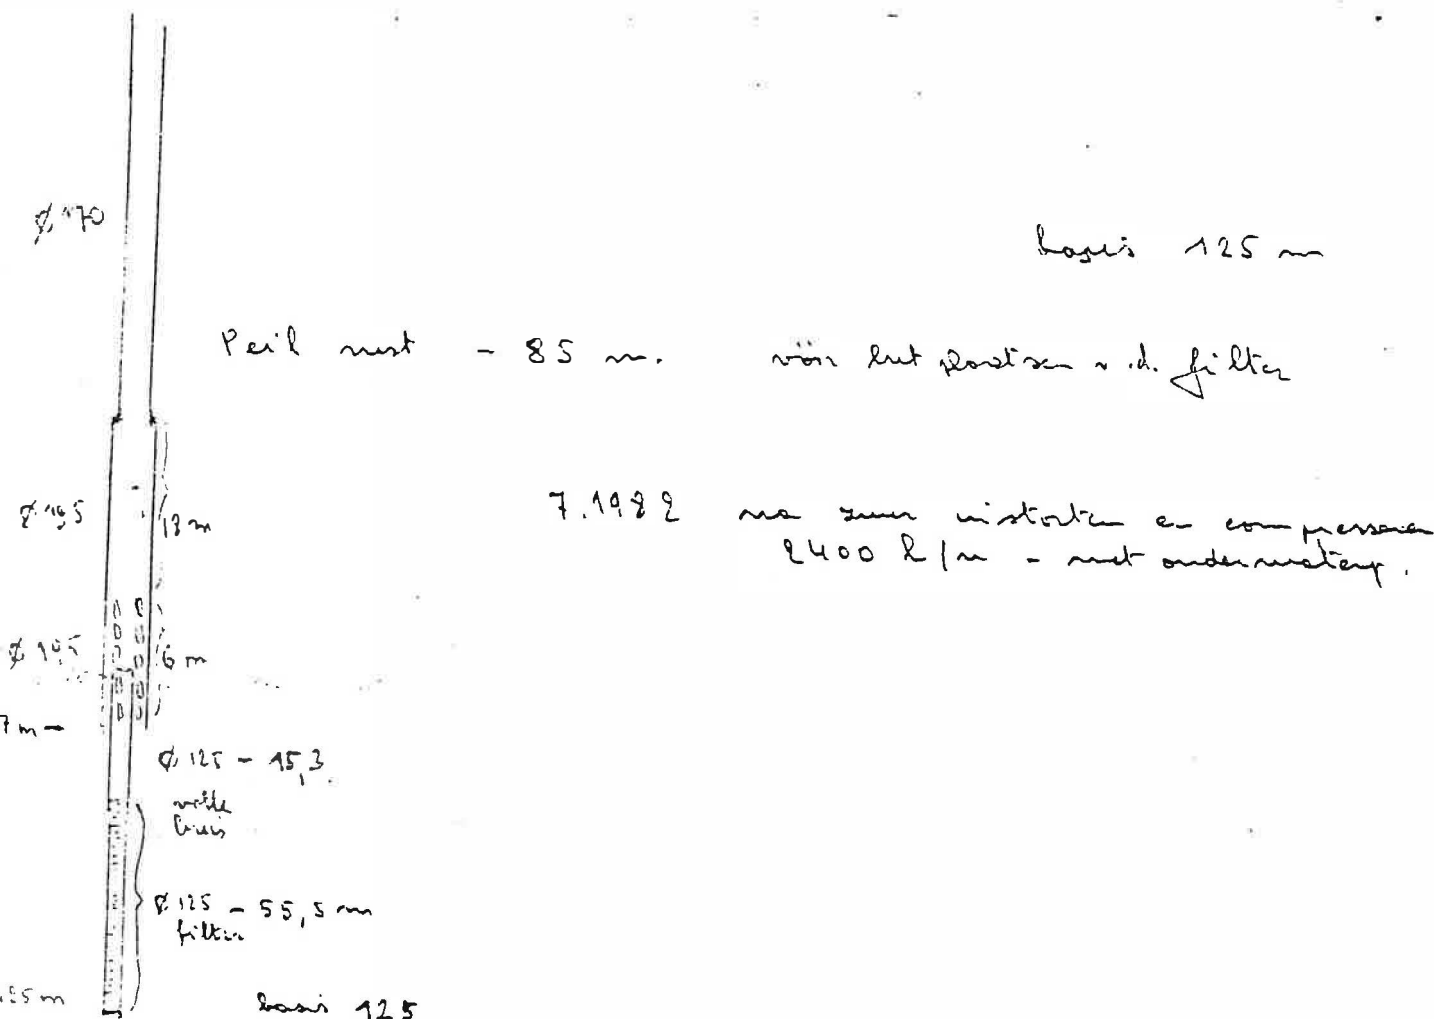 Ø 170
basis 125 m
Peil rust - 85 m. vóór het plaatsen v.d. filter
Ø 195
13 m
7.1982 na zuur instorten en compressor
2400 l/u - met onderwaterp.
Ø 195
6 m
7 m
Ø 125 - 15,3
volle
buis
Ø 125 - 55,5 m
filter
basis 125